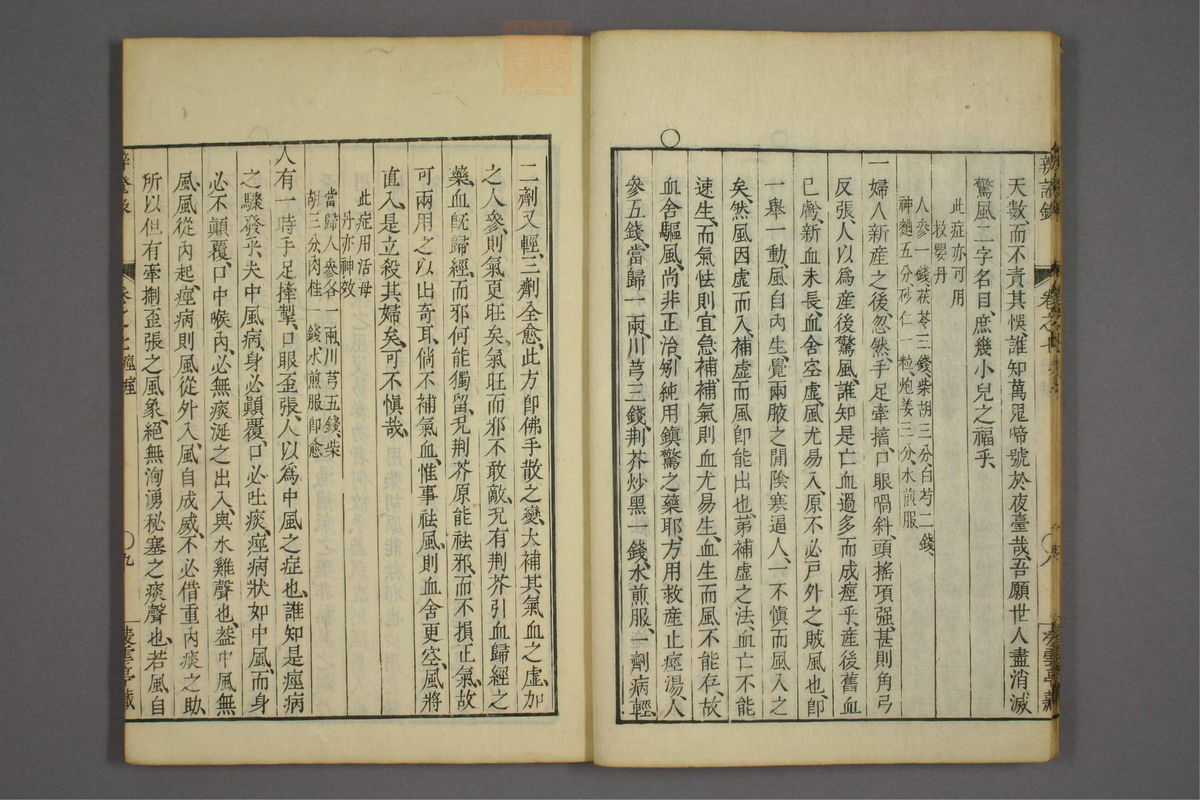 天數、而不責其悞、誰知萬鬼啼號於夜臺哉、吾願世人盡消滅
驚風二字名目、庶幾小兒之福乎、
此症亦可用
救嬰丹
人參一錢、茯苓三錢、柴胡三分、白芍二錢、
神麯五分、砂仁一粒、炮姜三分、水煎服
一婦人新產之後、忽然手足牽搐、口眼喎斜、頭搖項强、甚則角弓
反張、人以爲產後驚風、誰知是亡血過多而成痙乎、產後舊血
已虧、新血未長、血舍空虛、風尤易入、原不必戶外之賊風也、即
一舉一動、風自內生、覺兩腋之間陰寒逼人、一不慎而風入之
矣、然風因虛而入、補虛而風即能出也、第補虛之法、血亡不能
速生、而氣怯則宜急補、補氣則血尤易生、血生而風不能存、故
血舍驅風、尚非正治、矧純用鎮驚之藥耶、方用救產止痙湯、人
參五錢、當歸一兩、川芎三錢、荆芥炒黑一錢、水煎服、一劑病輕、
二劑又輕、三劑全愈、此方即佛手散之變、大補其氣血之虛、加
之人參、則氣更旺矣、氣旺而邪不敢敵、况有荆芥引血歸經之
藥、血旣歸經、而邪何能獨留、况荆芥原能祛邪、而不損正氣、故
可兩用之以出奇耳、倘不補氣血、惟事祛風、則血舍更空、風將
直入、是立殺其婦矣、可不慎哉、
此症用活母
丹亦神效
當歸人參各一兩、川芎五錢、柴
胡三分、肉桂一錢、水煎服即愈
人有一時手足攣掣、口眼歪張、人以爲中風之症也、誰知是痙病
之驟發乎、夫中風病、身必顛覆、口必吐痰、痙病狀如中風、而身
必不顛覆、口中喉內、必無痰涎之出入、與水雞聲也、葢中風無
風、風從內起、痙病則風從外入、風自成威、不必借重內痰之助、
所以但有牽掣歪張之風象、絕無洶湧秘塞之痰聲也、若風自
卷之七 痙痓
九